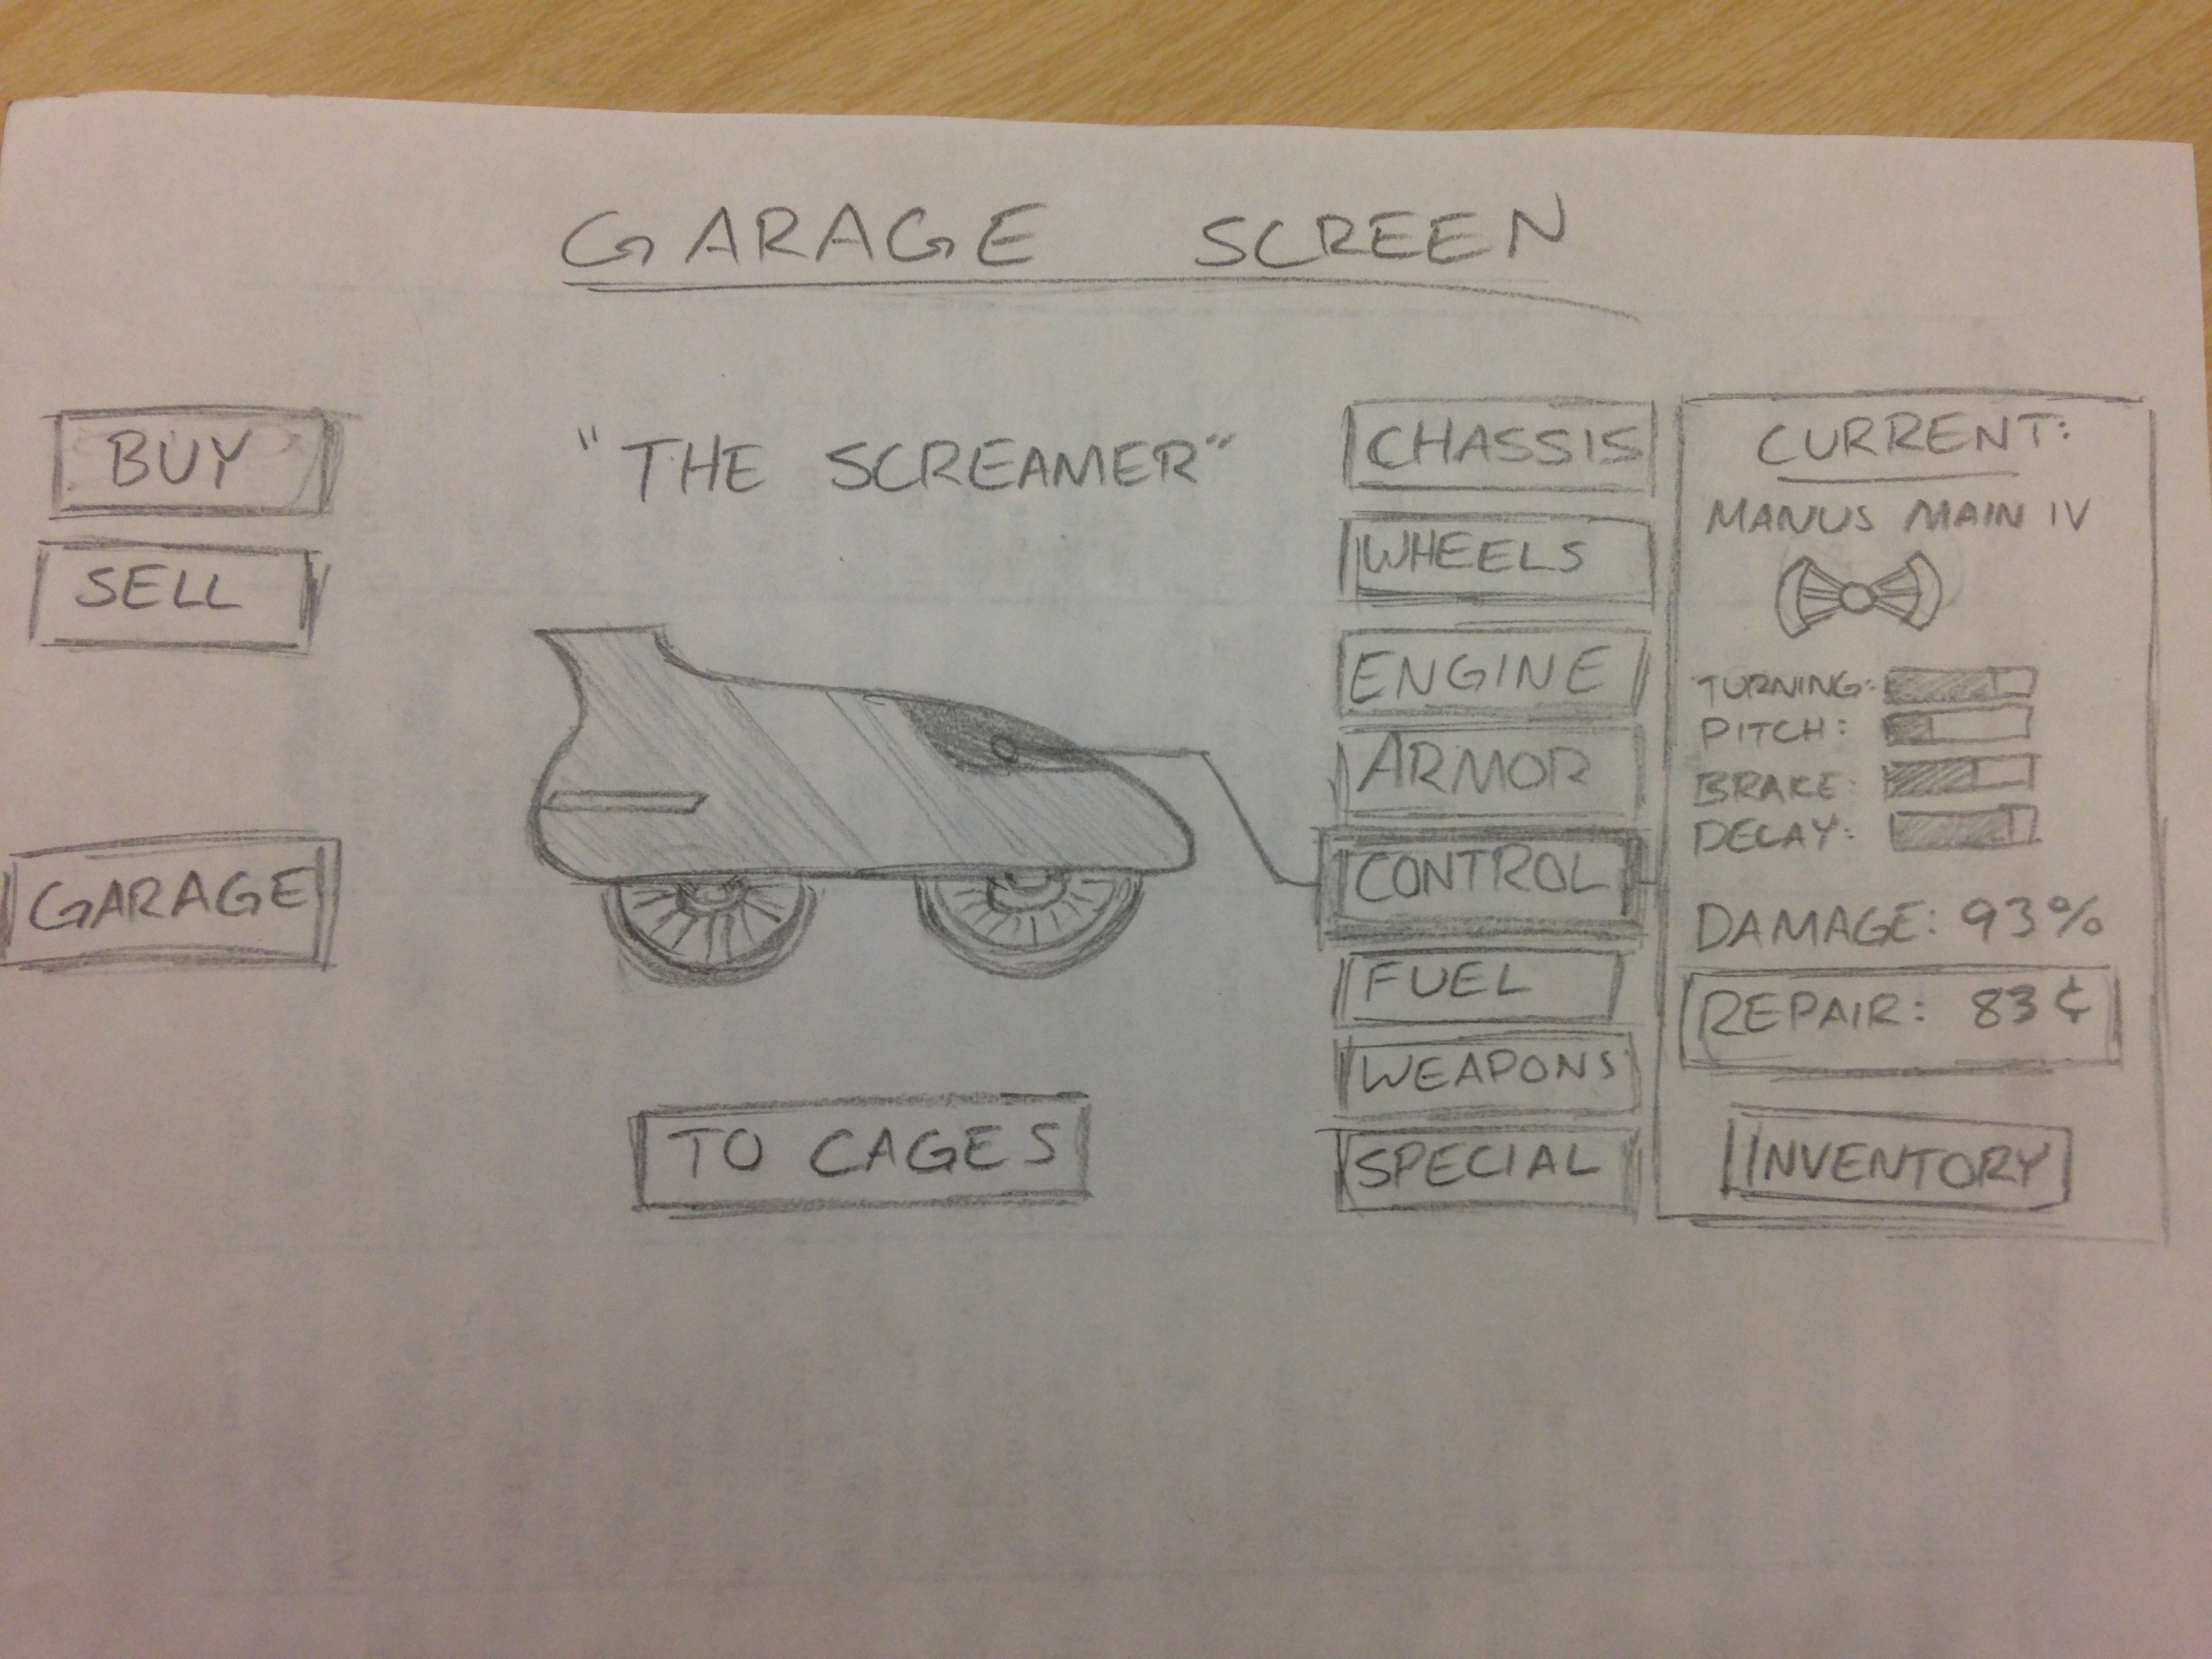 GARAGE SCREEN
BUY
SELL
GARAGE
"THE SCREAMER"
TO CAGES
CHASSIS
WHEELS
ENGINE
ARMOR
CONTROL
FUEL
WEAPONS
SPECIAL
CURRENT:
MANUS MAIN IV
TURNING:
PITCH:
BRAKE:
DELAY:
DAMAGE: 93%
REPAIR: 83¢
INVENTORY